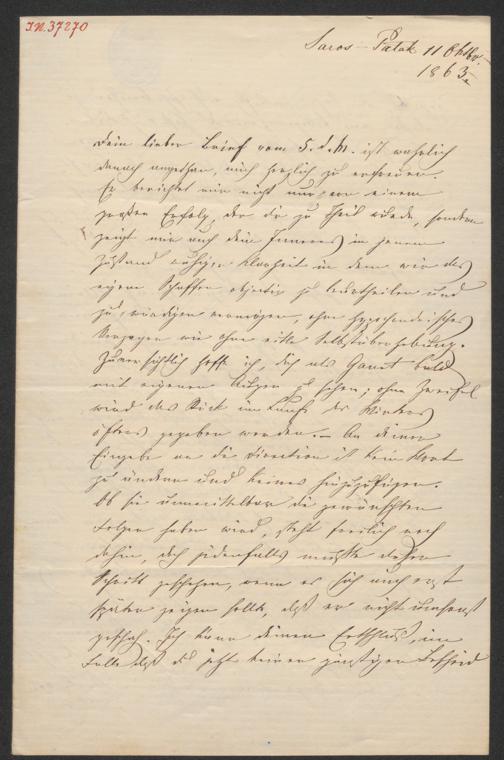 I.N. 37270
Saros-Patak 11 Oktbr.
1863.
Dein lieber Brief vom 5. d. M. ist wahrlich
danach angethan, mich herzlich zu erfreuen.
Er berichtet mir nicht nur von einem
großen Erfolg, der dir zu Theil wurde, sondern
zeigt mir auch dein Inneres in jenem
Zustand ruhiger Klarheit in dem wir das
eigene Schaffen objectiv zu beurtheilen und
zu würdigen vermögen, ohne hypochondrisches
Verzagen wie ohne eitle Selbstüberhebung.
Zuversichtlich hoffe ich, dich als Garret bald
mit eigenen Augen zu sehen; ohne Zweifel
wird das Stück im Laufe des Winters
öfters gegeben werden. – An deiner
Eingabe an die Direction ist kein Wort
zu ändern und keines hinzuzufügen.
Ob sie unmittelbar die gewünschten
Folgen haben wird, steht freilich noch
dahin, doch jedenfalls mußte dieser
Schritt geschehen, wenn es sich auch erst
später zeigen sollte, daß er nicht umsonst
geschah. Ich kann deinen Entschluß, im
Falle daß du jetzt keinen günstigen Bescheid